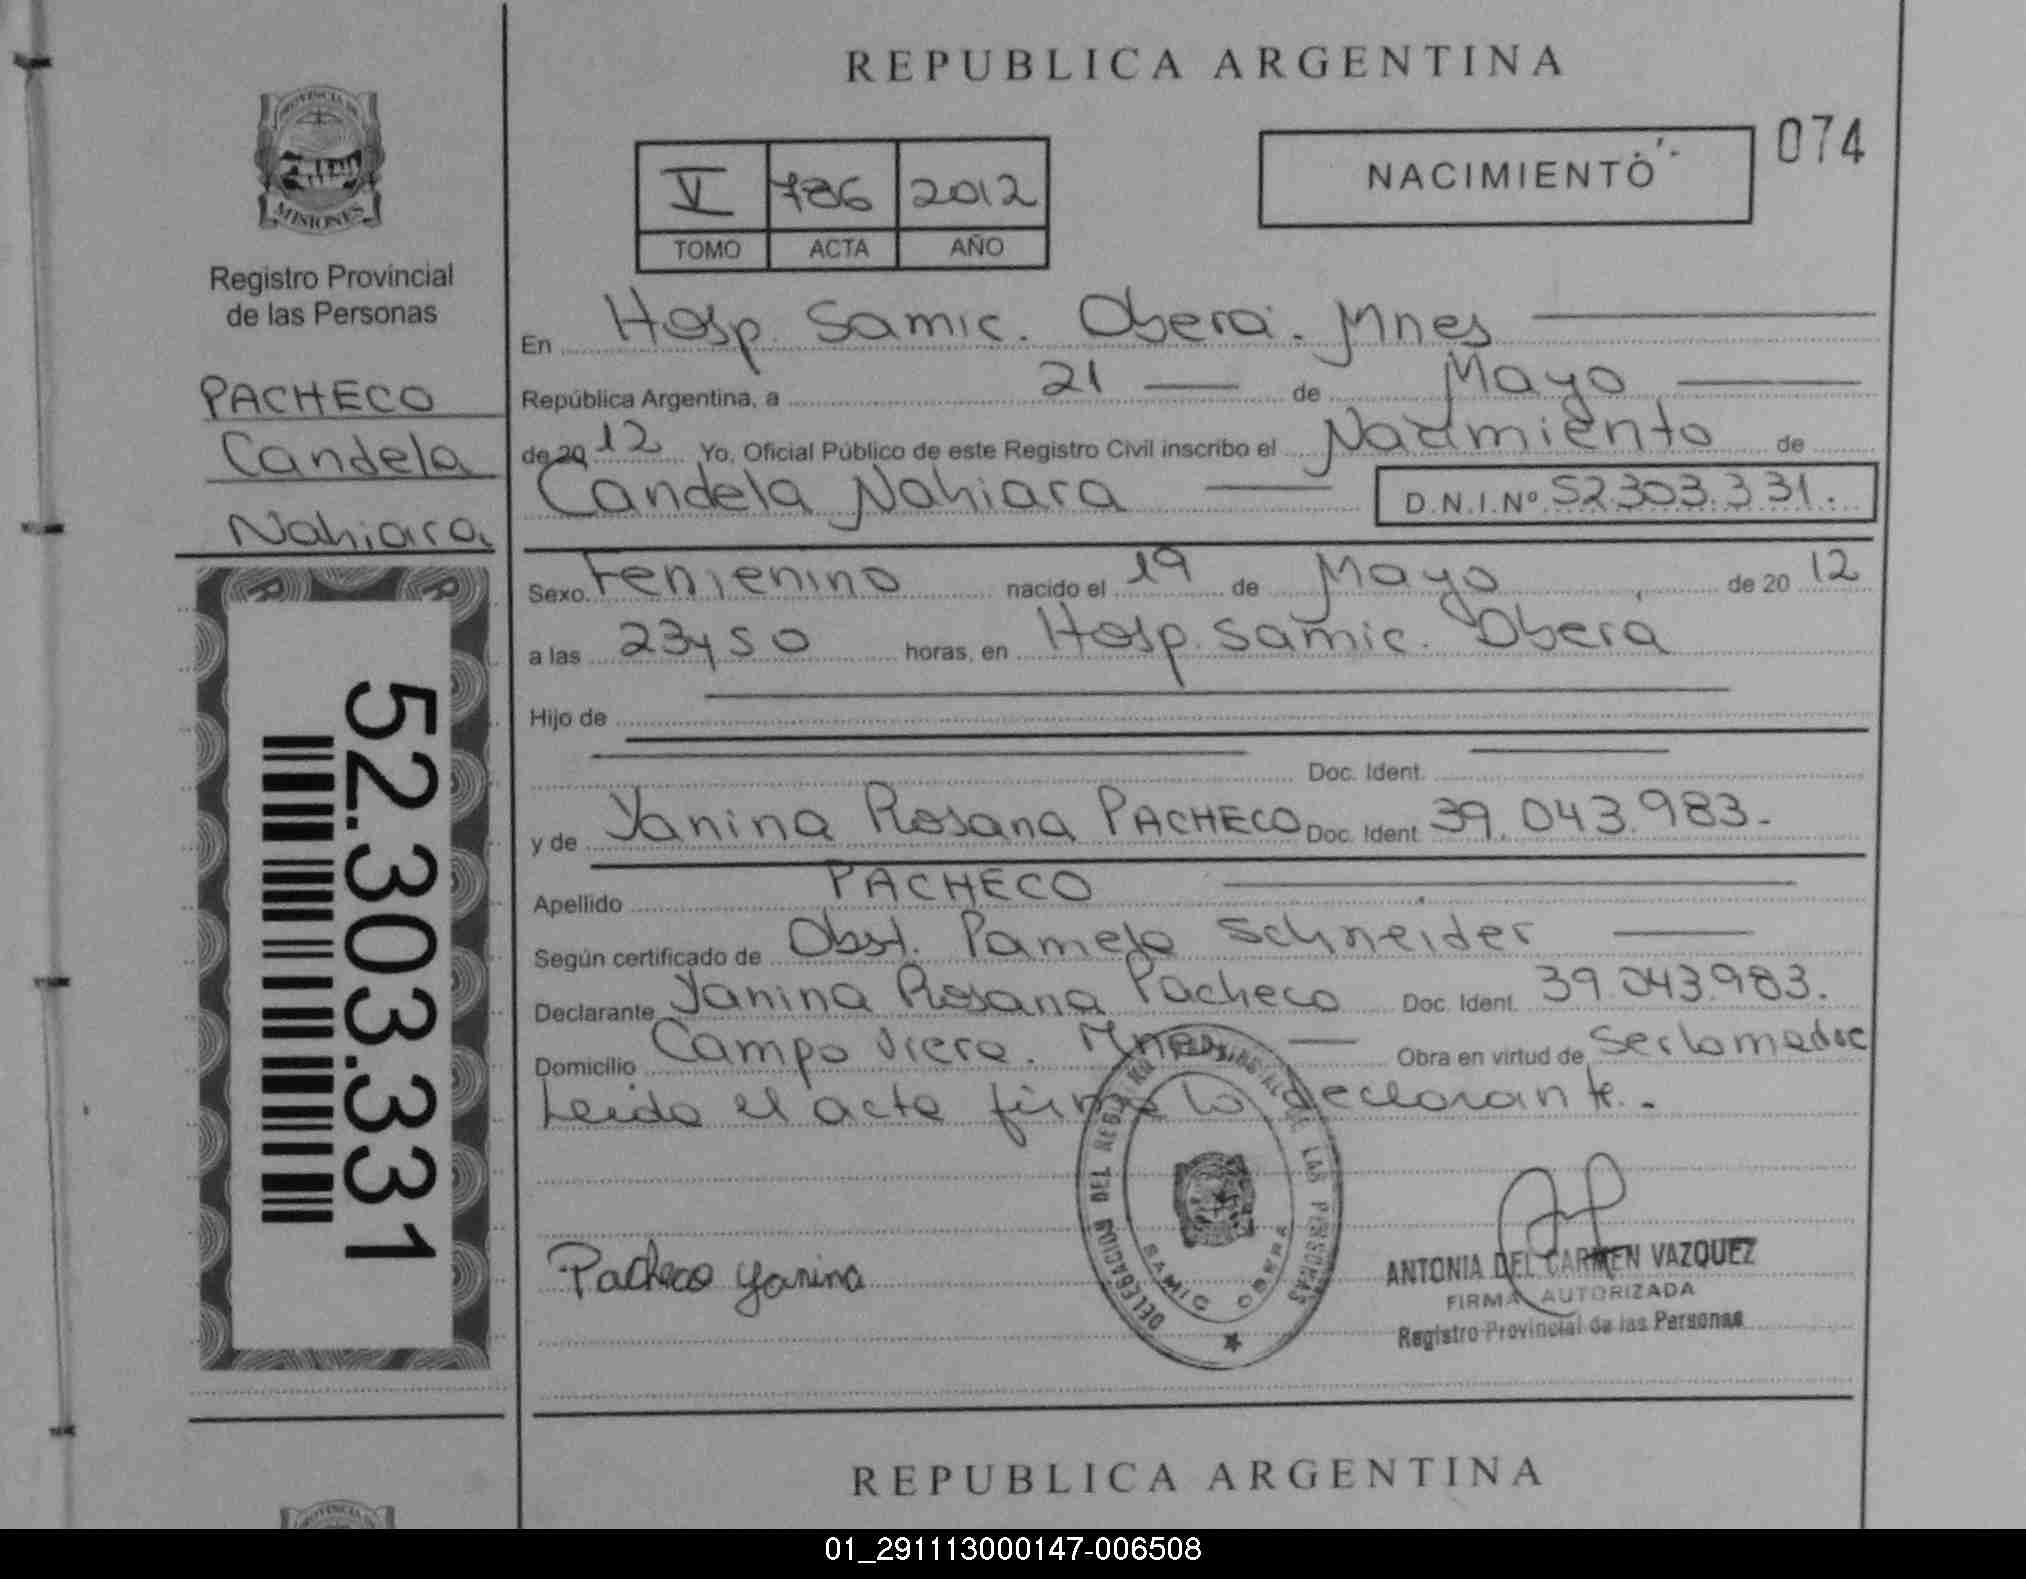 REPUBLICA ARGENTINA
074
NACIMIENTO
V 786 2012
TOMO ACTA AÑO
PROVINCIA DE
MISIONES
Registro Provincial
de las Personas
PACHECO
Candela
Nahiara
52.303.331
En Hosp. Samic. Obera. Mnes
República Argentina, a 21 de Mayo
de 20 12 Yo, Oficial Público de este Registro Civil inscribo el Nacimiento de
Candela Nahiara D.N.I.Nº 52.303.331.
Sexo Femenino nacido el 19 de Mayo de 20 12
a las 23y50 horas, en Hosp. Samic. Obera
Hijo de
Doc. Ident.
y de Yanina Rosana PACHECO Doc. Ident. 39.043.983.
Apellido PACHECO
Según certificado de Obst. Pamela Schneider
Declarante Yanina Rosana Pacheco Doc. Ident. 39.043.983.
Domicilio Campo Viera. Mnes Obra en virtud de
Leida el acta firma la declarante.
DELEGACION DEL REG. LAS PERSONAS
SAMIC OBERA
Pacheco Yanina
ANTONIA DEL CARMEN VAZQUEZ
FIRMA AUTORIZADA
Registro Provincial de las Personas
REPUBLICA ARGENTINA
PROVINCIA DE
01_291113000147-006508